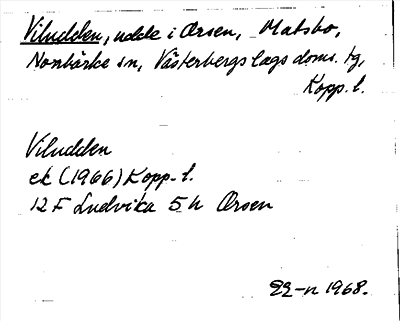 Viludden, udde i Örsen, Matsbo,
Norrbärke sn, Västerbergslags doms. tg,
Kopp. l.
Viludden
ek (1966) Kopp. l.
12 F Ludvika 5 h Örsen
1968.